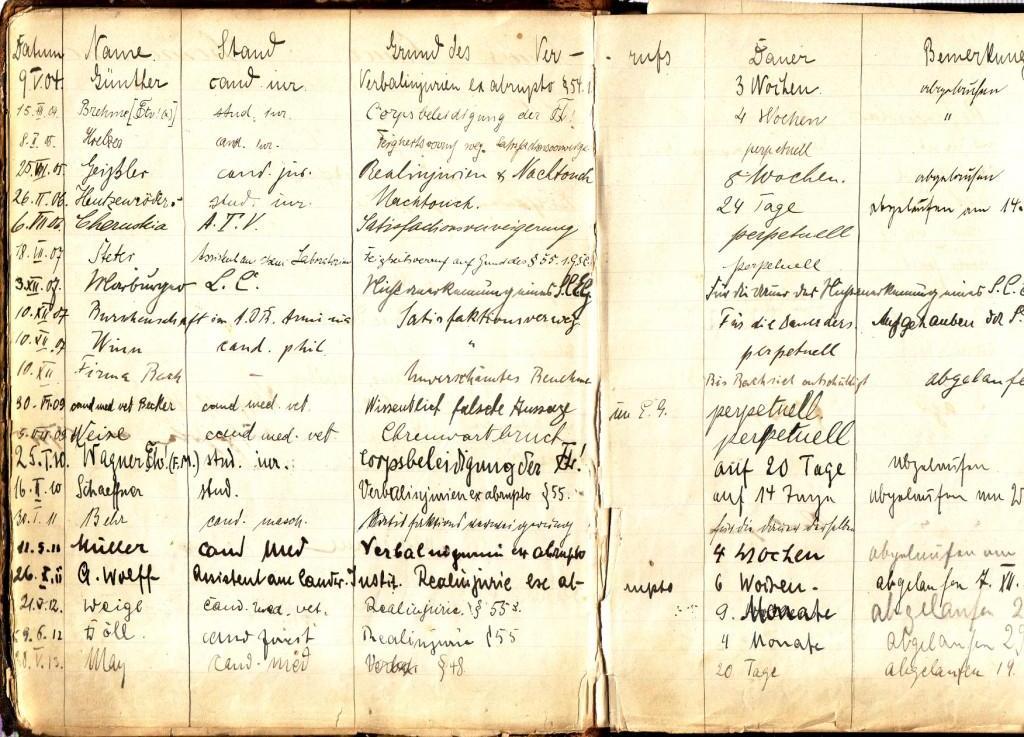 Datum Name. Stand Grund des Ver- - rufs Dauer Bemerkung
9.V.04. Günther cand. iur. Verbalinjurien ex abrupto §54. 3 Wochen. abgelaufen
Brehme stud. iur. Corpsbeleidigung der 4 Wochen "
8.X.05. cand. iur. perpetuell
25.VII.05. Geißler cand. jur. Realinjurien & Nachtouch 8 Wochen. abgelaufen
26.II.06. stud. iur. Nachtouch. 24 Tage abgelaufen am 14.
Cheruskia A.T.V. Satisfactionsverweigerung perpetuell
18.VII.07 Steker Assistent am chem. Laboratorium Feigheitsverruf auf Grund des §55.1. perpetuell.
3.XII.07. Marburger L.C. Nichtanerkennung eines S.C. Für die Dauer der Nichtanerkennung eines S.C.
10.XII.07 Burschenschaft im A.D.B. Arminia Satisfaktionsverweig. Für die Dauer ders. Aufgehoben
10.XII.07 Winn cand. phil. " perpetuell
10.XII Firma Bach - Unverschämtes Benehme Bis Bach sich entschuldigt abgelaufe
30.VI.09 cand med vet Becker cand. med. vet. Wissentlich falsche Aussage im E.G. perpetuell.
Weise cand med. vet. Ehrenwortbruch perpetuell
25.I.10. Wagner (F.M.) stud. iur. Corpsbeleidigung der auf 20 Tage abgelaufen.
16.II.10 Schaeffner stud. Verbalinjurien ex abrupto §55. auf 14 Tage abgelaufen am 2
30.I.11 Behr cand. masch. Satisfaktionsverweigerung für die Dauer derselben
11.5.11 Müller cand med Verbalinjurie ex abrupto 4 Wochen abgelaufen am
26.X.11 G. Wolff Assistent am landw. Instit. Realinjurie exe ab- rupto 6 Wochen. abgelaufen 7. VII.
21.V.12. Weigl cand. med. vet. Realinjurie. §55 9. Monate abgelaufen 2
9.6.12 Höll. cand forest Realinjurie §55 4 Monate abgelaufen 29
28.V.13. May cand. med Verbal. §48. 20 Tage abgelaufen 19.